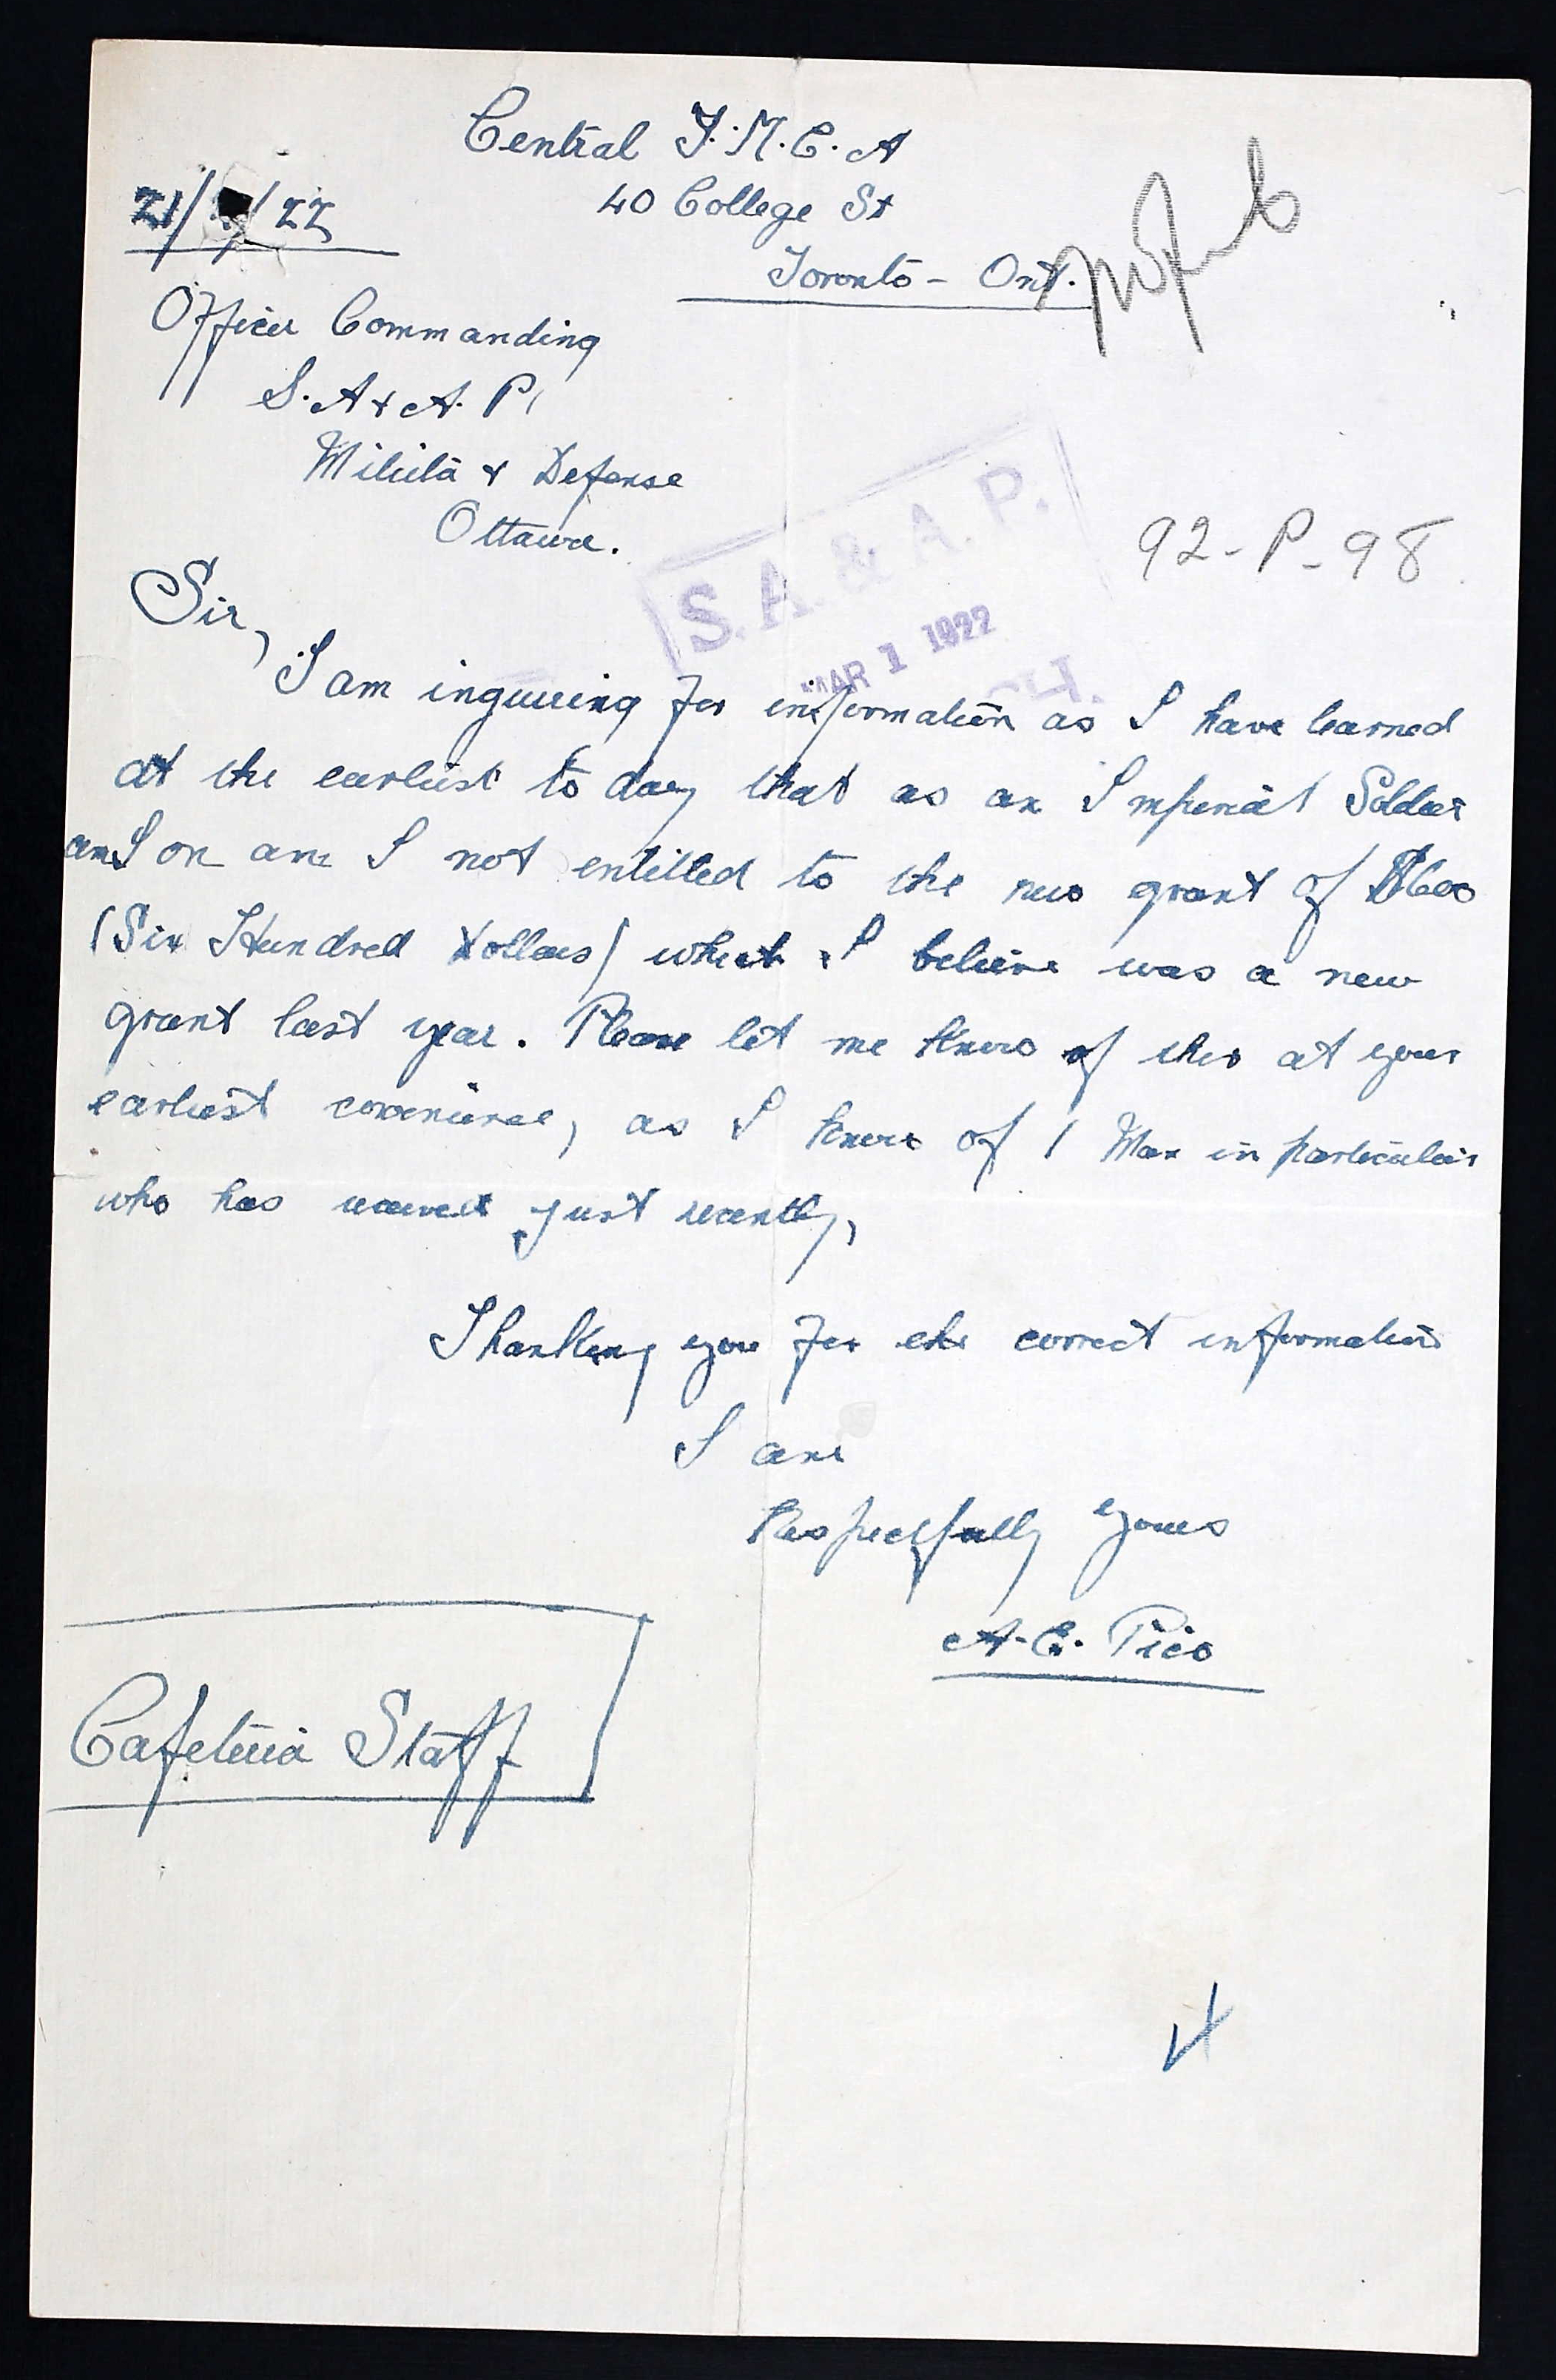 Central Y.M.C.A
40 College St
21/ /22
Toronto - Ont.
Officer Commanding
S.A & A.P.
Militia & Defense
Ottawa.
92-P-98
S.A. & A.P.
MAR 1 1922
Sir,
I am inquiring for information as I have learned
at the earliest to day that as an Imperial Soldier
on am I not entitled to the new grant of $600
(Six Hundred Dollars) which I believe was a new
grant last year. Please let me know of this at your
earliest convenience, as I know of 1 Man in particular
who has received just recently,
Thanking you for the correct information
I am
Respectfully yours
A.E. Pico
Cafeteria Staff